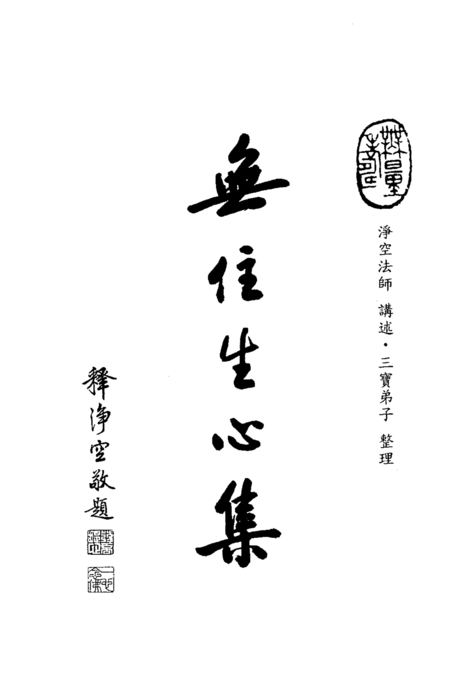 無量壽
淨空法師 講述・三寶弟子 整理
無住生心集
釋淨空敬題